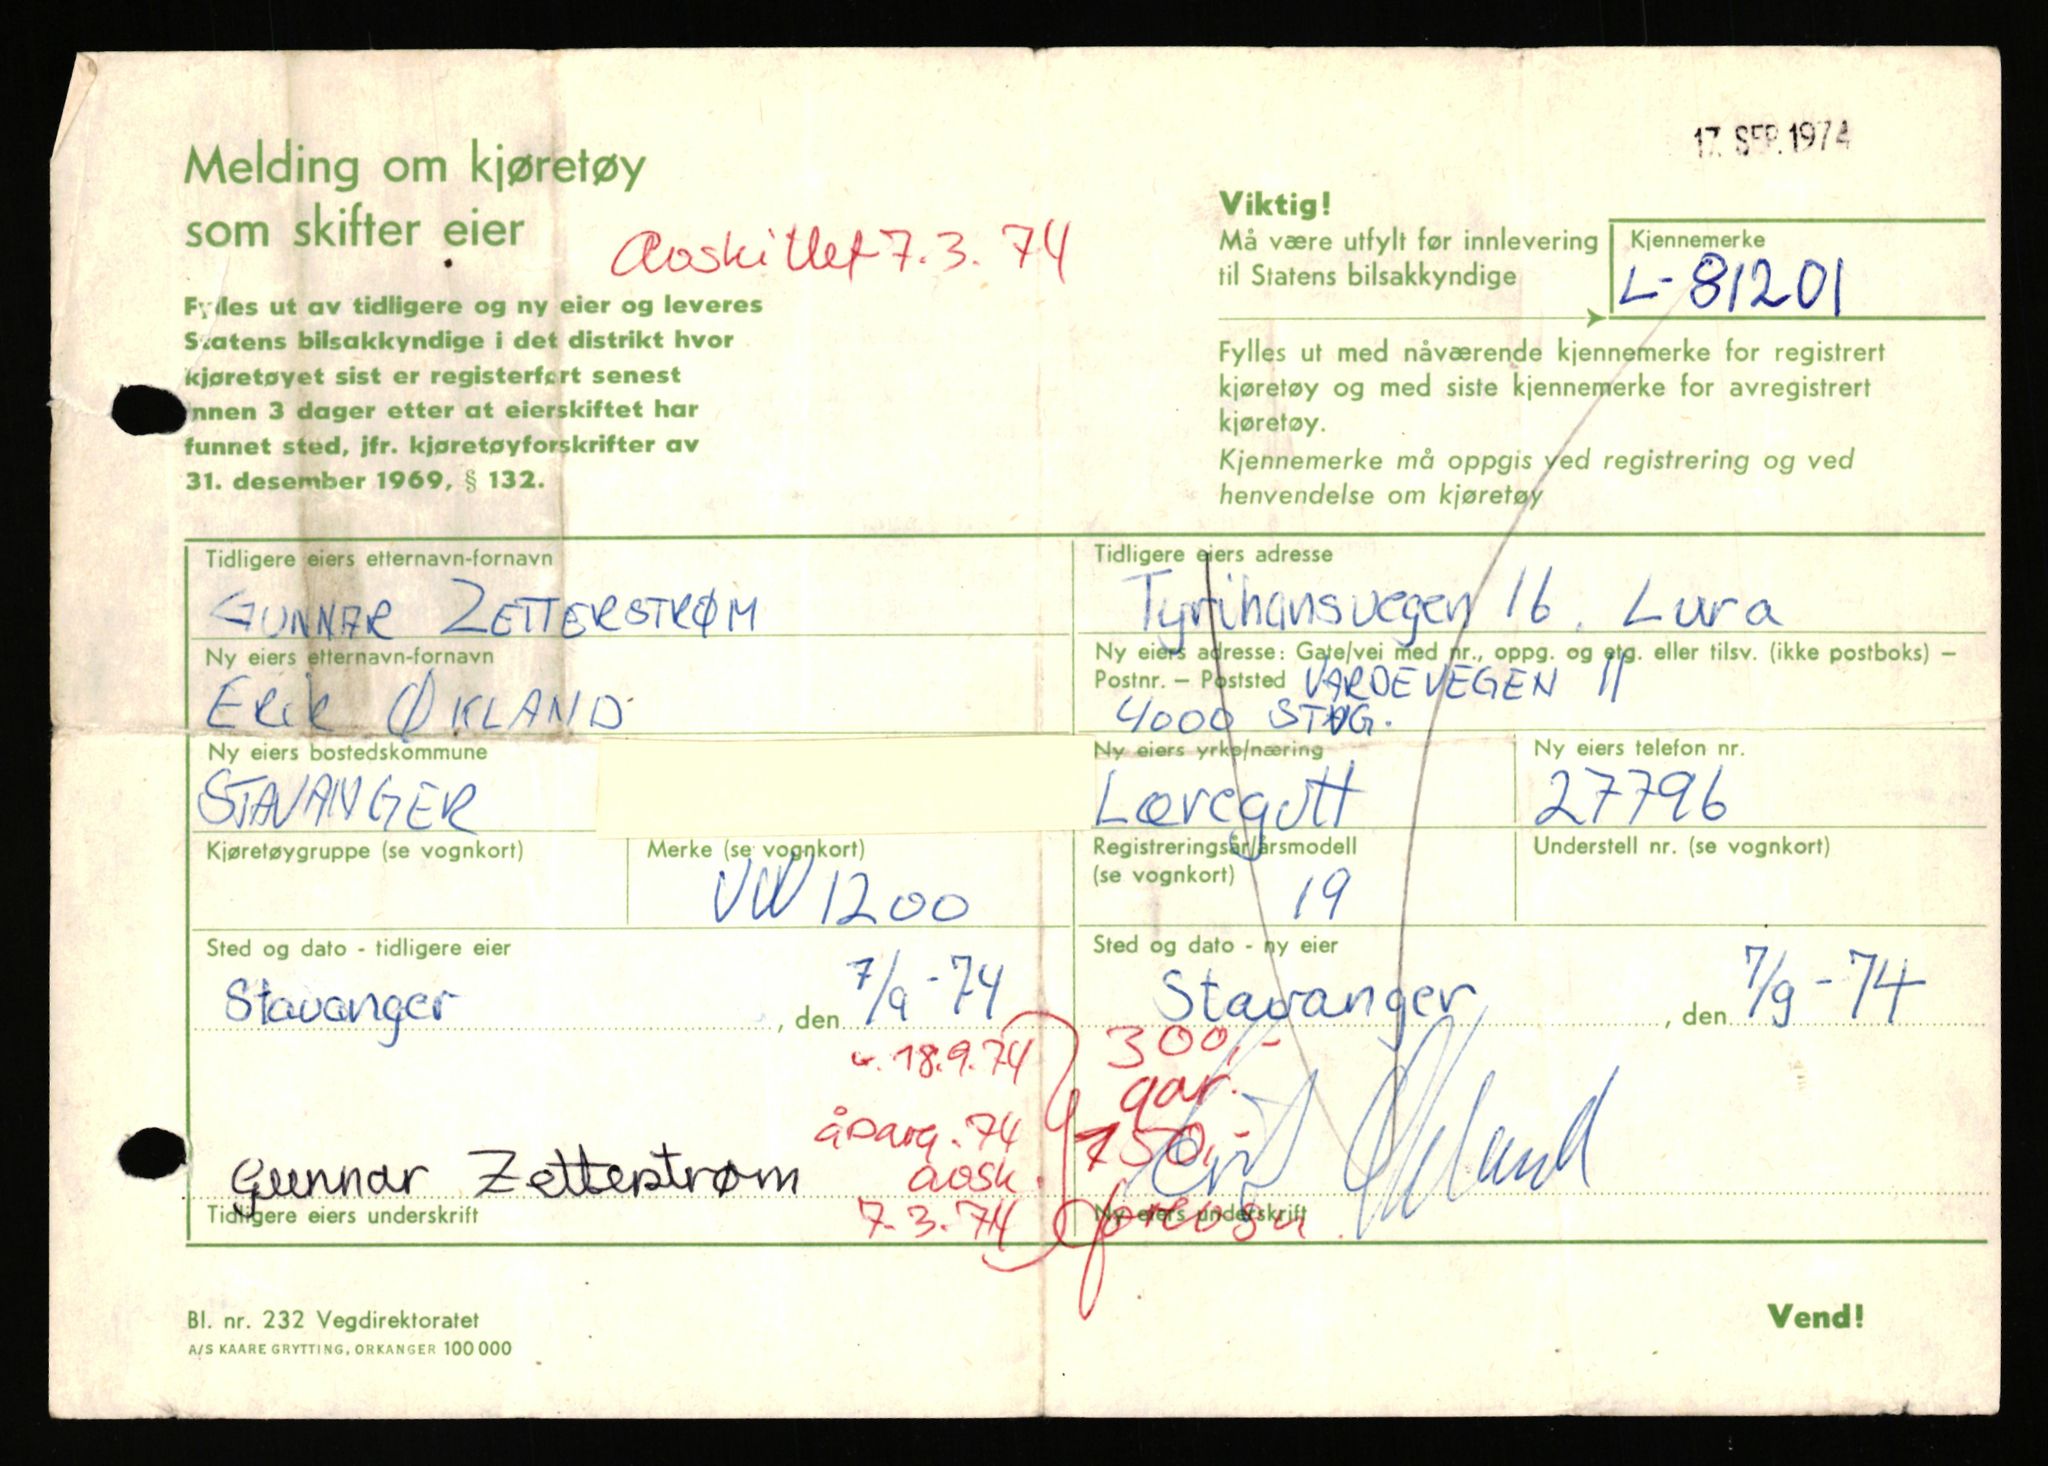 17. SEP. 1974
Melding om kjøretøy
som skifter eier
Avskiltet 7.3.74
Fylles ut av tidligere og ny eier og leveres
Statens bilsakkyndige i det distrikt hvor
kjøretøyet sist er registerført senest
innen 3 dager etter at eierskiftet har
funnet sted, jfr. kjøretøyforskrifter av
31. desember 1969, § 132.
Viktig!
Må være utfylt før innlevering
til Statens bilsakkyndige
Kjennemerke
L-81201
Fylles ut med nåværende kjennemerke for registrert
kjøretøy og med siste kjennemerke for avregistrert
kjøretøy.
Kjennemerke må oppgis ved registrering og ved
henvendelse om kjøretøy
Tidligere eiers etternavn-fornavn
GUNNAR ZETTERSTRØM
Tidligere eiers adresse
Tyrihansvegen 16. Lura
Ny eiers etternavn-fornavn
ERIK ØKLAND
Ny eiers adresse: Gate/vei med nr., oppg. og etg. eller tilsv. (ikke postboks) –
Postnr. – Poststed VARDEVEGEN 11
4000 STVG.
Ny eiers bostedskommune
STAVANGER
Ny eiers yrke/næring
Læregutt
Ny eiers telefon nr.
27796
Kjøretøygruppe (se vognkort)
Merke (se vognkort)
VW 1200
Registreringsår/årsmodell
(se vognkort) 19
Understell nr. (se vognkort)
Sted og dato - tidligere eier
Stavanger, den 7/9-74
Sted og dato - ny eier
Stavanger, den 7/9-74
18.9.74
300,-
gar.
årsavg. 74
150,-
avsk.
7.3.74
Gunnar Zetterstrøm
Tidligere eiers underskrift
Erik Økland
Ny eiers underskrift
Bl. nr. 232 Vegdirektoratet
A/S KAARE GRYTTING, ORKANGER 100 000
Vend!